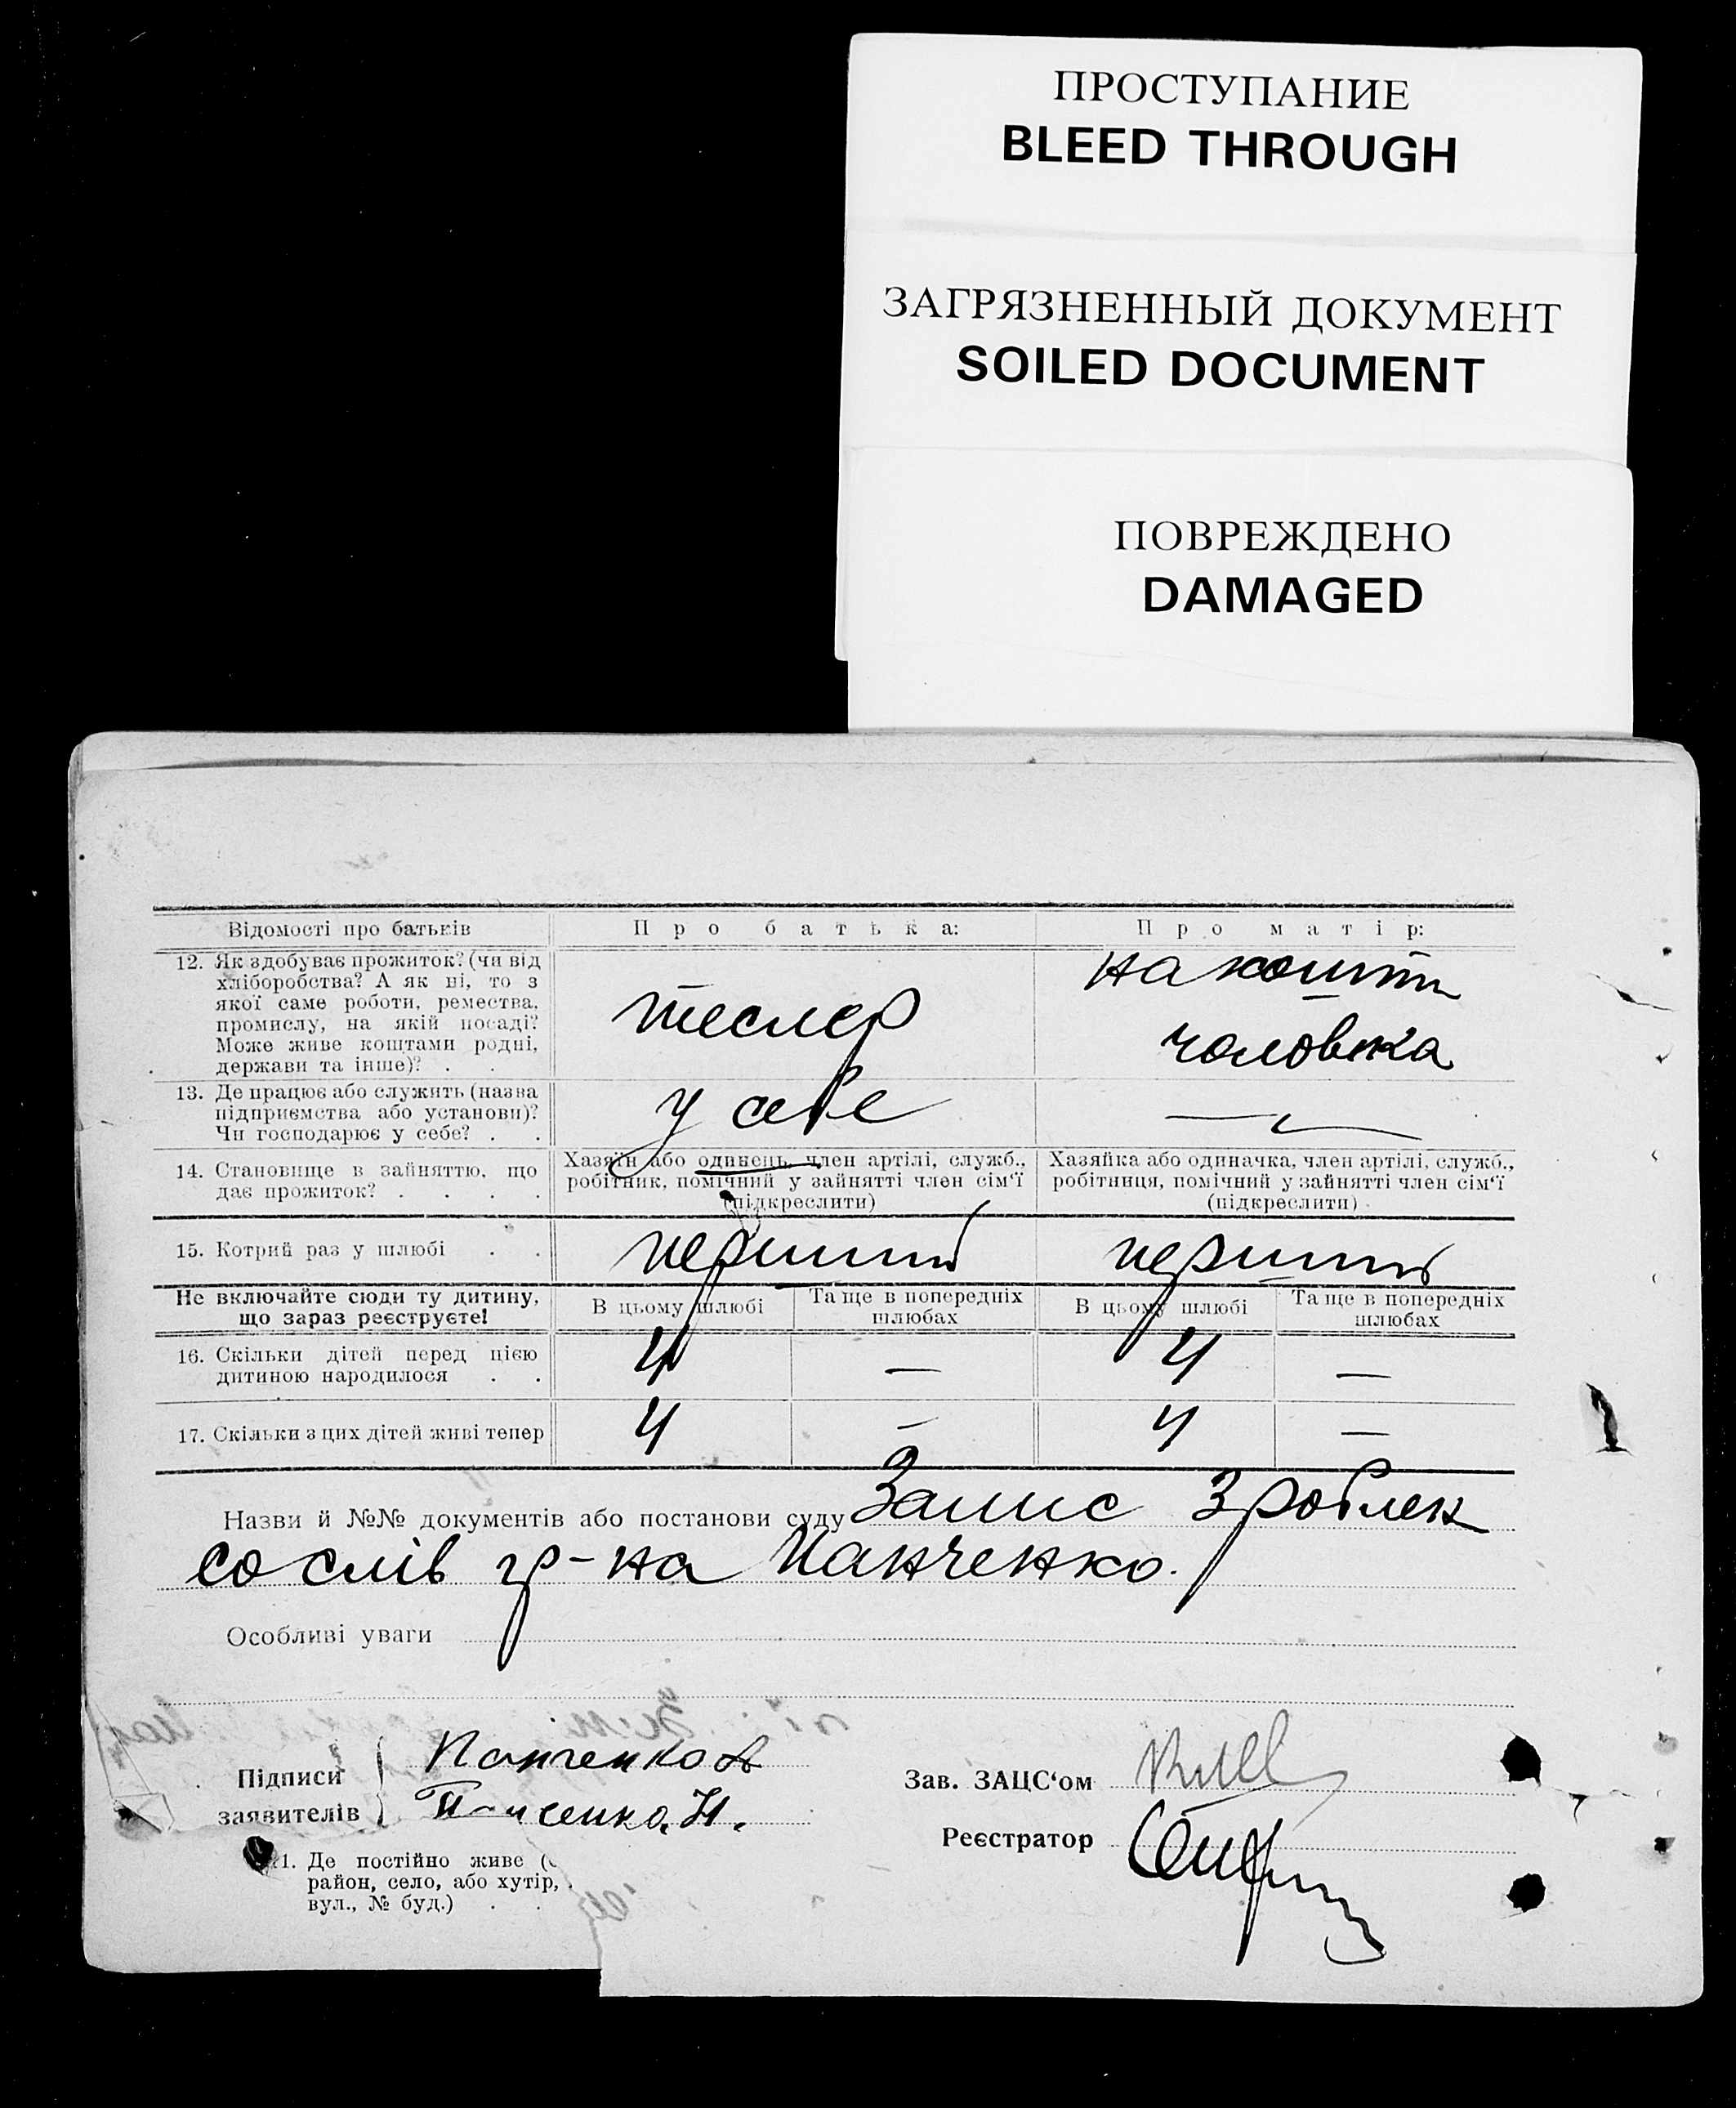 ПРОСТУПАНИЕ
BLEED THROUGH
ЗАГРЯЗНЕННЫЙ ДОКУМЕНТ
SOILED DOCUMENT
ПОВРЕЖДЕНО
DAMAGED
Відомості про батьків
Про батька:
Про матір:
12. Як здобуває прожиток? (чи від
хліборобства? А як ні, то з
якої саме роботи, ремества,
промислу, на якій посаді?
Може живе коштами родні,
держави та інше)? . .
тесляр
на кошти
чоловіка
13. Де працює або служить (назва
підприємства або установи)?
Чи господарює у себе? . .
у себе
—
14. Становище в зайняттю, що
дає прожиток? . . . .
Хазяїн або одинець, член артілі, служб.,
робітник, помічний у зайнятті член сім'ї
(підкреслити)
Хазяйка або одиначка, член артілі, служб.,
робітниця, помічний у зайнятті член сім'ї
(підкреслити)
15. Котрий раз у шлюбі . .
перший
перший
Не включайте сюди ту дитину,
що зараз реєструєте!
В цьому шлюбі
Та ще в попередніх
шлюбах
В цьому шлюбі
Та ще в попередніх
шлюбах
16. Скільки дітей перед цією
дитиною народилося . .
4
—
4
—
17. Скільки з цих дітей живі тепер
4
—
4
—
Назви й №№ документів або постанови суду Запис зроблен
со слів гр-на Панченко.
Особливі уваги
Підписи
заявителів
Панченко
Зав. ЗАЦС'ом
Реєстратор
1. Де постійно живе
район, село, або хутір,
вул., № буд.) . .